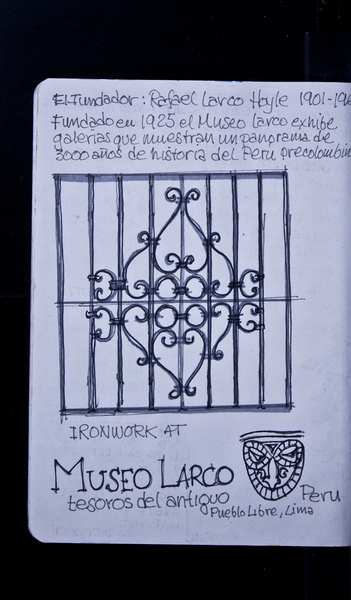 El Fundador: Rafael Larco Hoyle 1901-196
Fundado en 1925 el Museo Larco exhibe
galerías que muestran un panorama de
3000 años de historia del Peru precolombin
IRONWORK AT
MUSEO LARCO
tesoros del antiguo Peru
Pueblo Libre, Lima